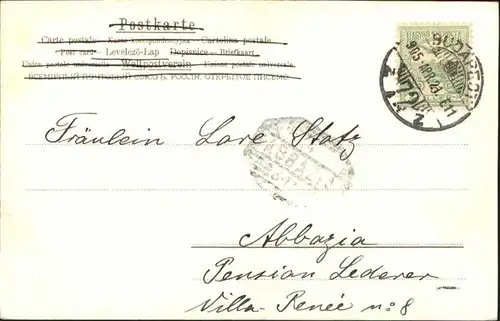 Postkarte
Carte postale — Карта корреспондентская — Cartolina postale
Post card — Levelező-Lap — Dopisnice — Briefkaart
Union postale universelle Weltpostverein Unione postale universale
ВСЕМІРНЫЙ ПОЧТОВЫЙ СОЮЗЪ. РОССІЯ. ОТКРЫТОЕ ПИСЬМО.
BUDAPEST
Fräulein Lore Stotz
ABBAZIA
Abbazia
Pension Lederer
Villa-Renée no: 8